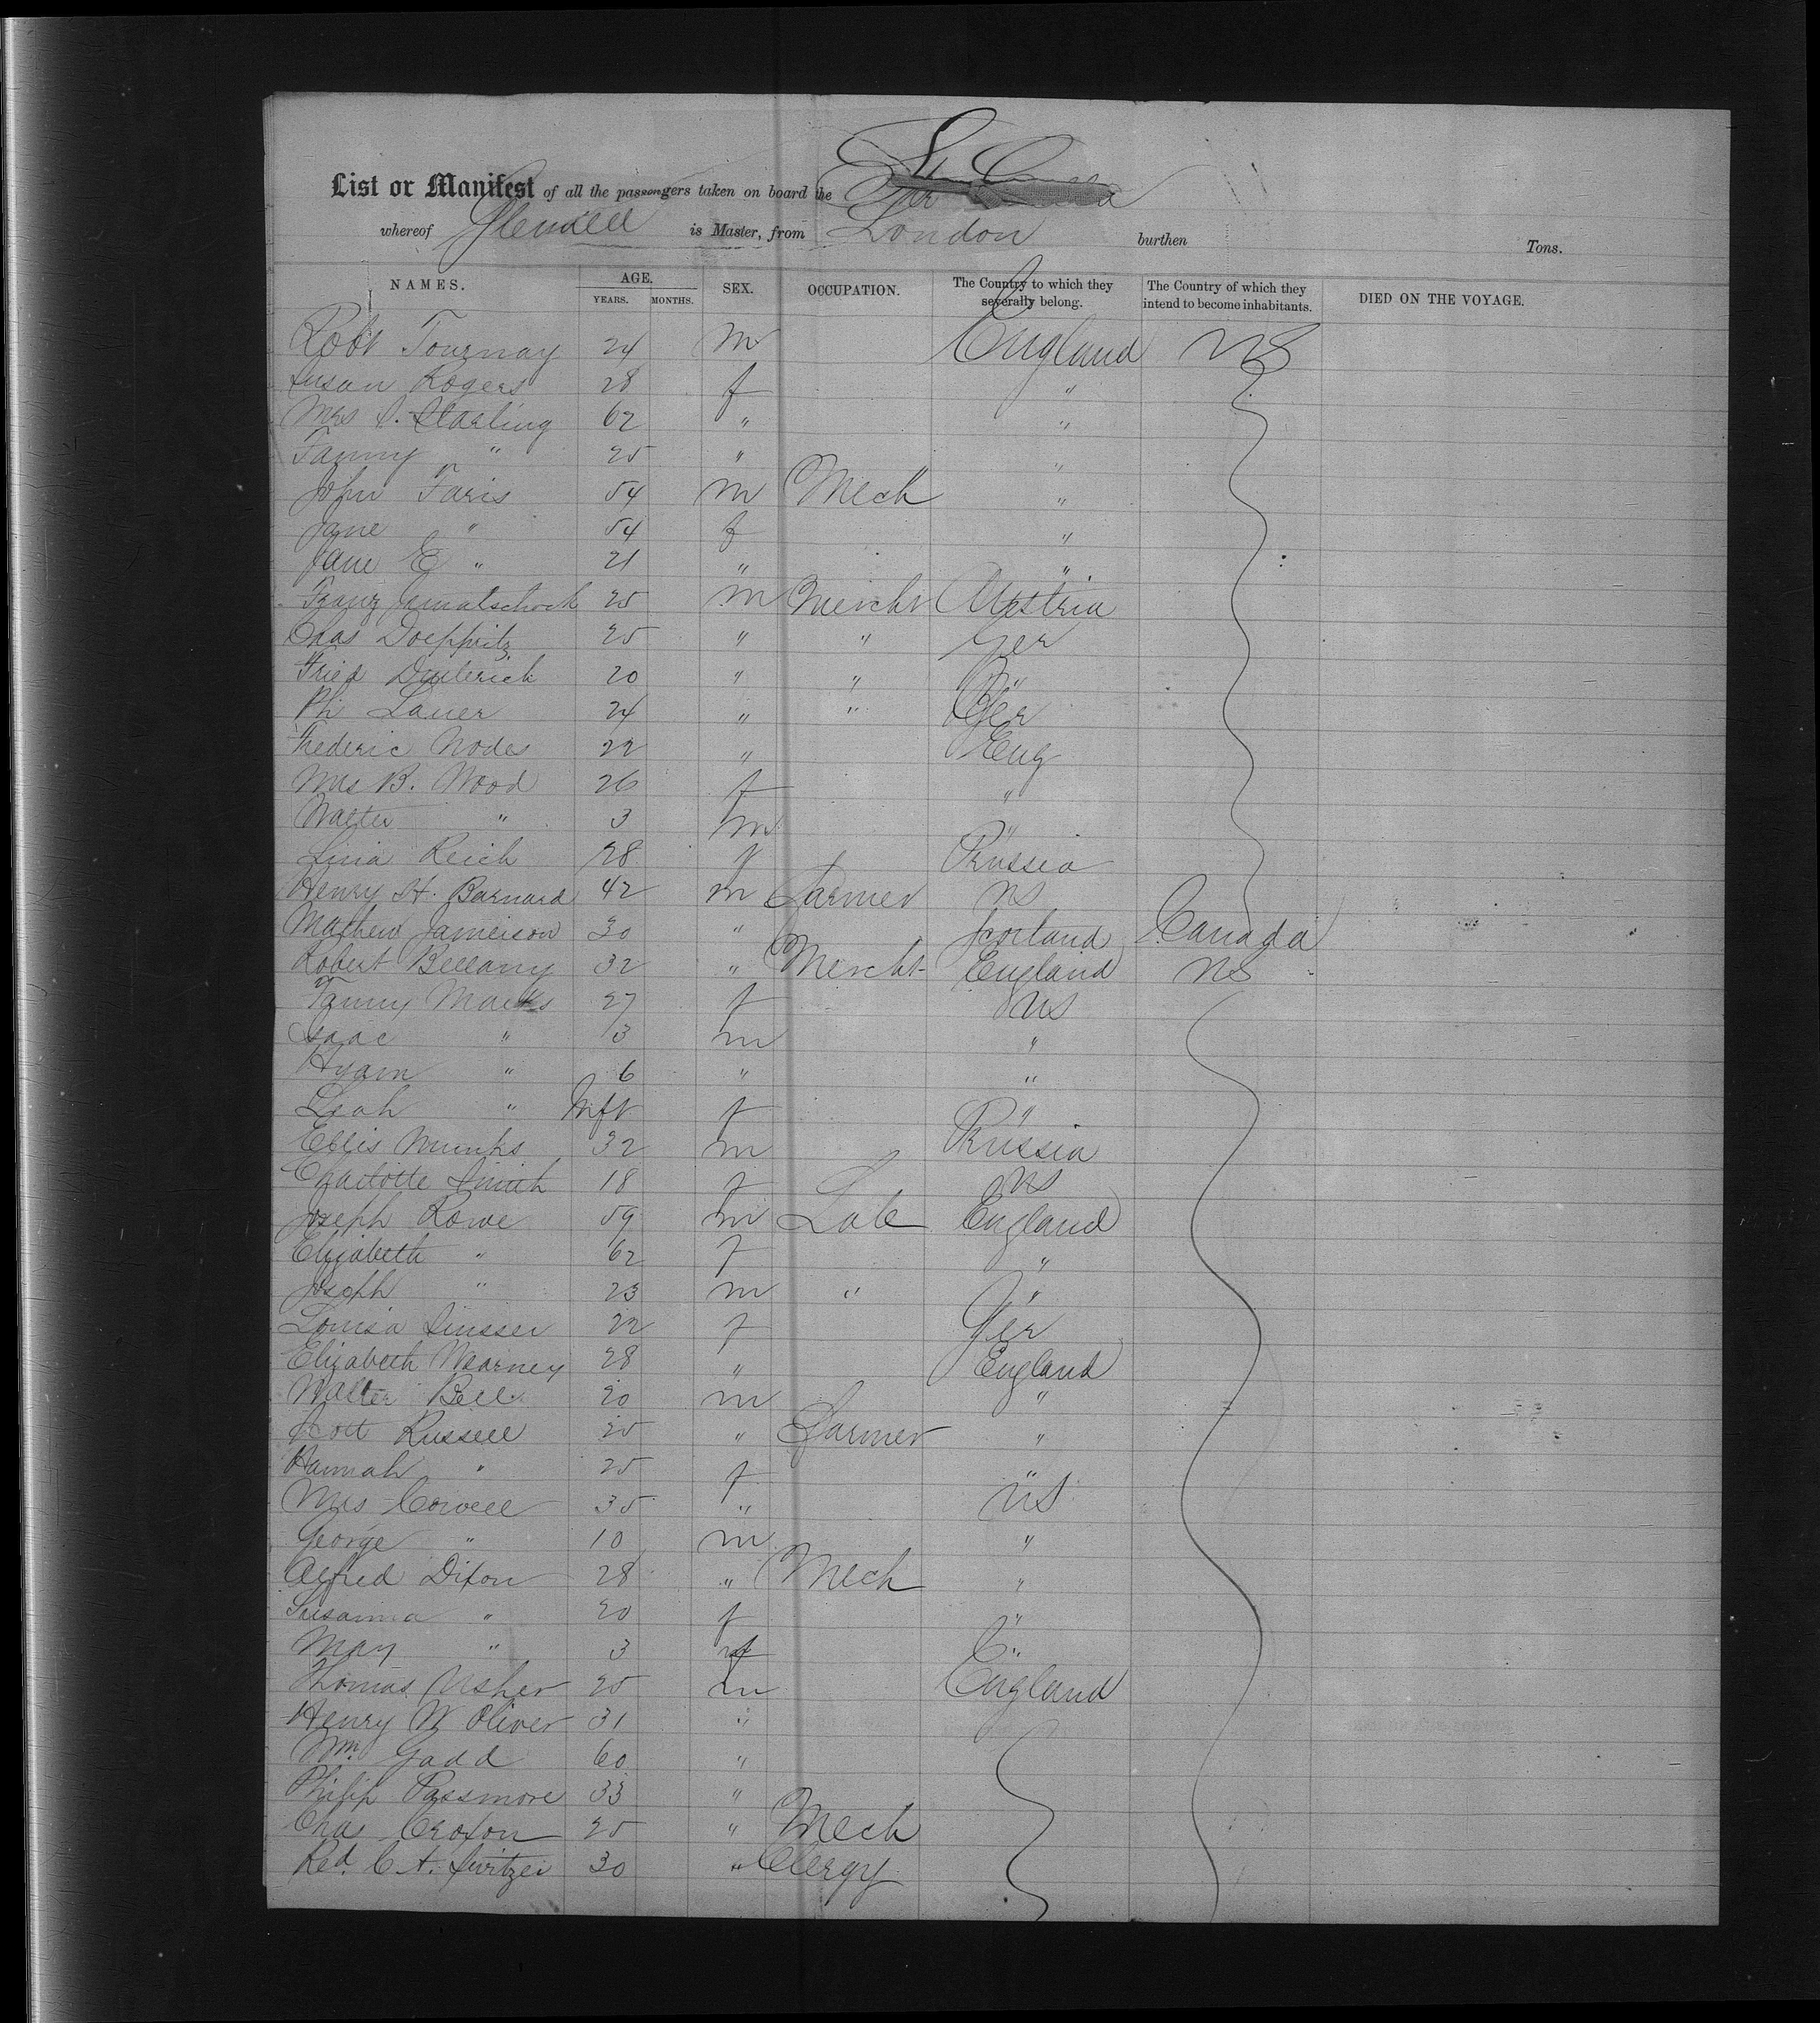 List or Manifest of all the passengers taken on board the Str
whereof Glendell is Master, from London burthen Tons.
NAMES. AGE. YEARS. MONTHS. SEX. OCCUPATION. The Country to which they severally belong. The Country of which they intend to become inhabitants. DIED ON THE VOYAGE.
Robt Tournay 24 m England US
Susan Rogers 28 f "
Mrs S. Starling 62 " "
Fanny " 25 " "
John Faris 54 m Mech "
Jane " 54 f "
Jane E " 21 " "
Franz 25 m Mercht Austria
Chas Doeppritz 25 " " Ger
Fried Diederich 20 " " "
Ph Lauer 24 " " Ger
Frederic Nodes 22 " Eng
Mrs B. Wood 26 f "
Walter " 3 m "
Lina Reich 28 f Russia
Henry H. Barnard 42 m Farmer US
Mathew Jameison 30 " Scotland Canada
Robert Bellamy 32 " Mercht England US
Fanny Marks 27 f US
Isaac " 3 m "
Hyam " 6 " "
Leah " Inft f "
Ellis Munks 32 m Russia
Charlotte Smith 18 f US
Joseph Rowe 59 m Lab England
Elizabeth " 62 f "
Joseph " 23 m " "
Louisa Sinsser 22 f Ger
Elizabeth Warney 28 " England
Walter Bell 20 m "
Scott Russell 25 " Farmer "
Hannah " 25 f "
Mrs Cowell 35 " US
George " 10 m "
Alfred Dixon 28 " Mech "
Susanna " 20 f "
May " 3 f "
Thomas Usher 25 m England
Henry W Oliver 31 "
Wm Gadd 60 "
Philip Passmore 33 "
Chas Croxon 25 " Mech
Red. C. A. Switzer 30 " Clergy